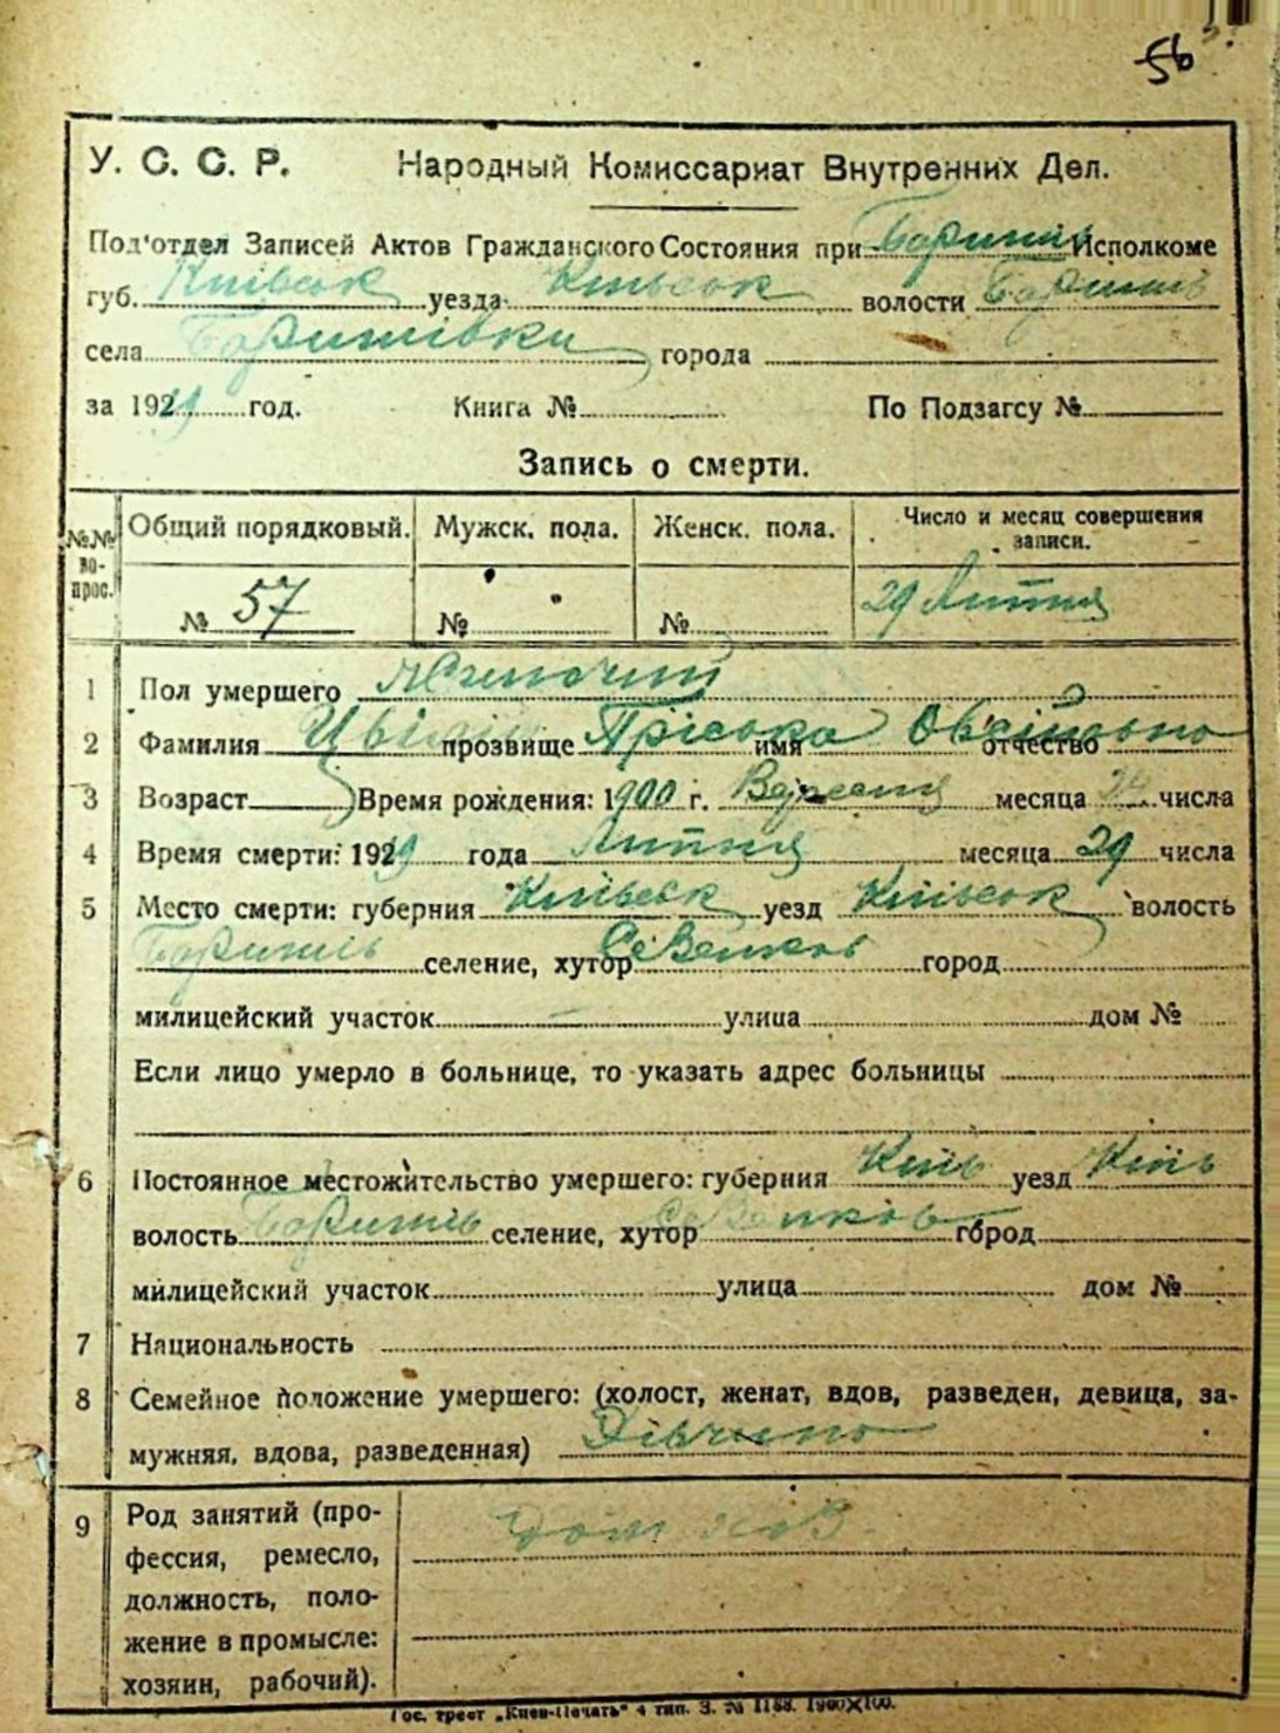 56
У. С. С. Р. Народный Комиссариат Внутренних Дел.
Под'отдел Записей Актов Гражданского Состояния при Баришів Исполкоме
губ. Київськ уезда Київськ волости Баришів
села Баришівки города
за 192 год. Книга № По Подзагсу №
Запись о смерти.
№№ во-прос. Общий порядковый. Мужск. пола. Женск. пола. Число и месяц совершения записи.
№ 57 № № 29 Липня
1 Пол умершего Жиночий
2 Фамилия прозвище Пріська имя отчество
3 Возраст Время рождения: 1900 г. Вересня месяца числа
4 Время смерти: 192 года Липня месяца 29 числа
5 Место смерти: губерния Київськ уезд Київськ волость
Баришів селение, хутор город
милицейский участок улица дом №
Если лицо умерло в больнице, то указать адрес больницы
6 Постоянное местожительство умершего: губерния Київ уезд Київ
волость Баришів селение, хутор город
милицейский участок улица дом №
7 Национальность
8 Семейное положение умершего: (холост, женат, вдов, разведен, девица, за-
мужняя, вдова, разведенная) Дівчина
9 Род занятий (про-
фессия, ремесло,
должность, поло-
жение в промысле:
хозяин, рабочий).
Гос. трест „Киев-Печать" 4 тип. З. № 1188. 1900×100.